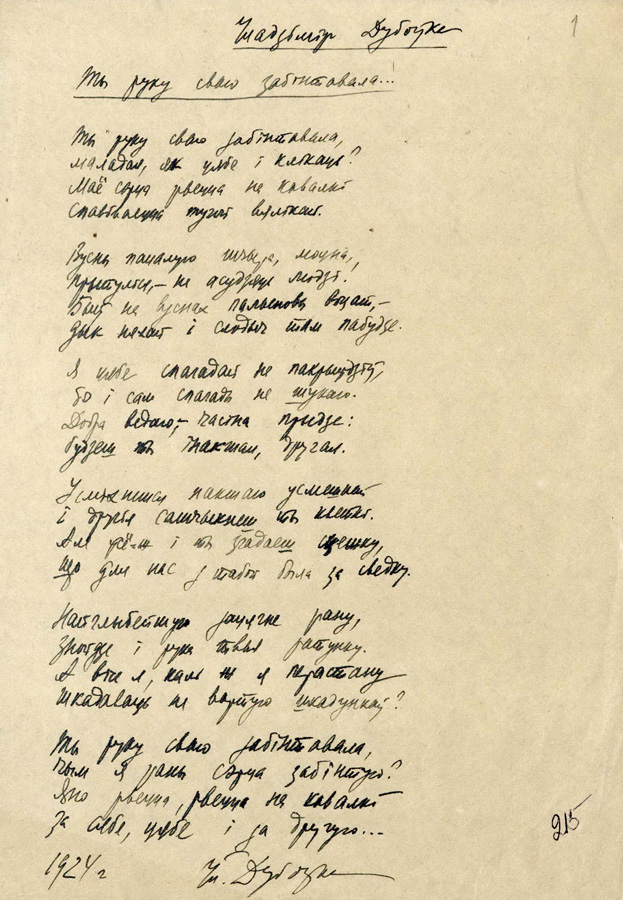 Уладзімір Дубоўка
1
Ты руку сваю забінтовала...
Ты руку сваю забінтовала,
маладая, як цябе і клікаць?
Маё сэрца рвецца на кавалкі
спавіваецца тугой вялікай.
Вусны пацалую моцна,
Прытуліся, — не асудзяць людзі.
быў на вуснах палыновы воцат, —
дык няхай і слодыч там пабудзе.
Я цябе спагадай не пакрыўдзіў,
бо і сам спагады не шукаю.
Добра ведаю, — часіна прыдзе:
будзеш ты інакшая, другая.
Усміхнешся інакшаю усмешкай
і другія самчыкнеш ты кветкі.
Але ўсё-ж і ты згадаеш сцежку,
што для нас з табой была за сведку.
Найглыбейшую зацягне рану,
знойдзе і рука твая ратунку.
А вось я, калі ж я перастану
шкадаваць ня вартую шкадункаў?
Ты руку сваю забінтовала,
чым я раны сэрца забінтую?
Яно рвецца, рвецца на кавалкі
за сябе, цябе і за другую...
1924 г Ул. Дубоўка
215